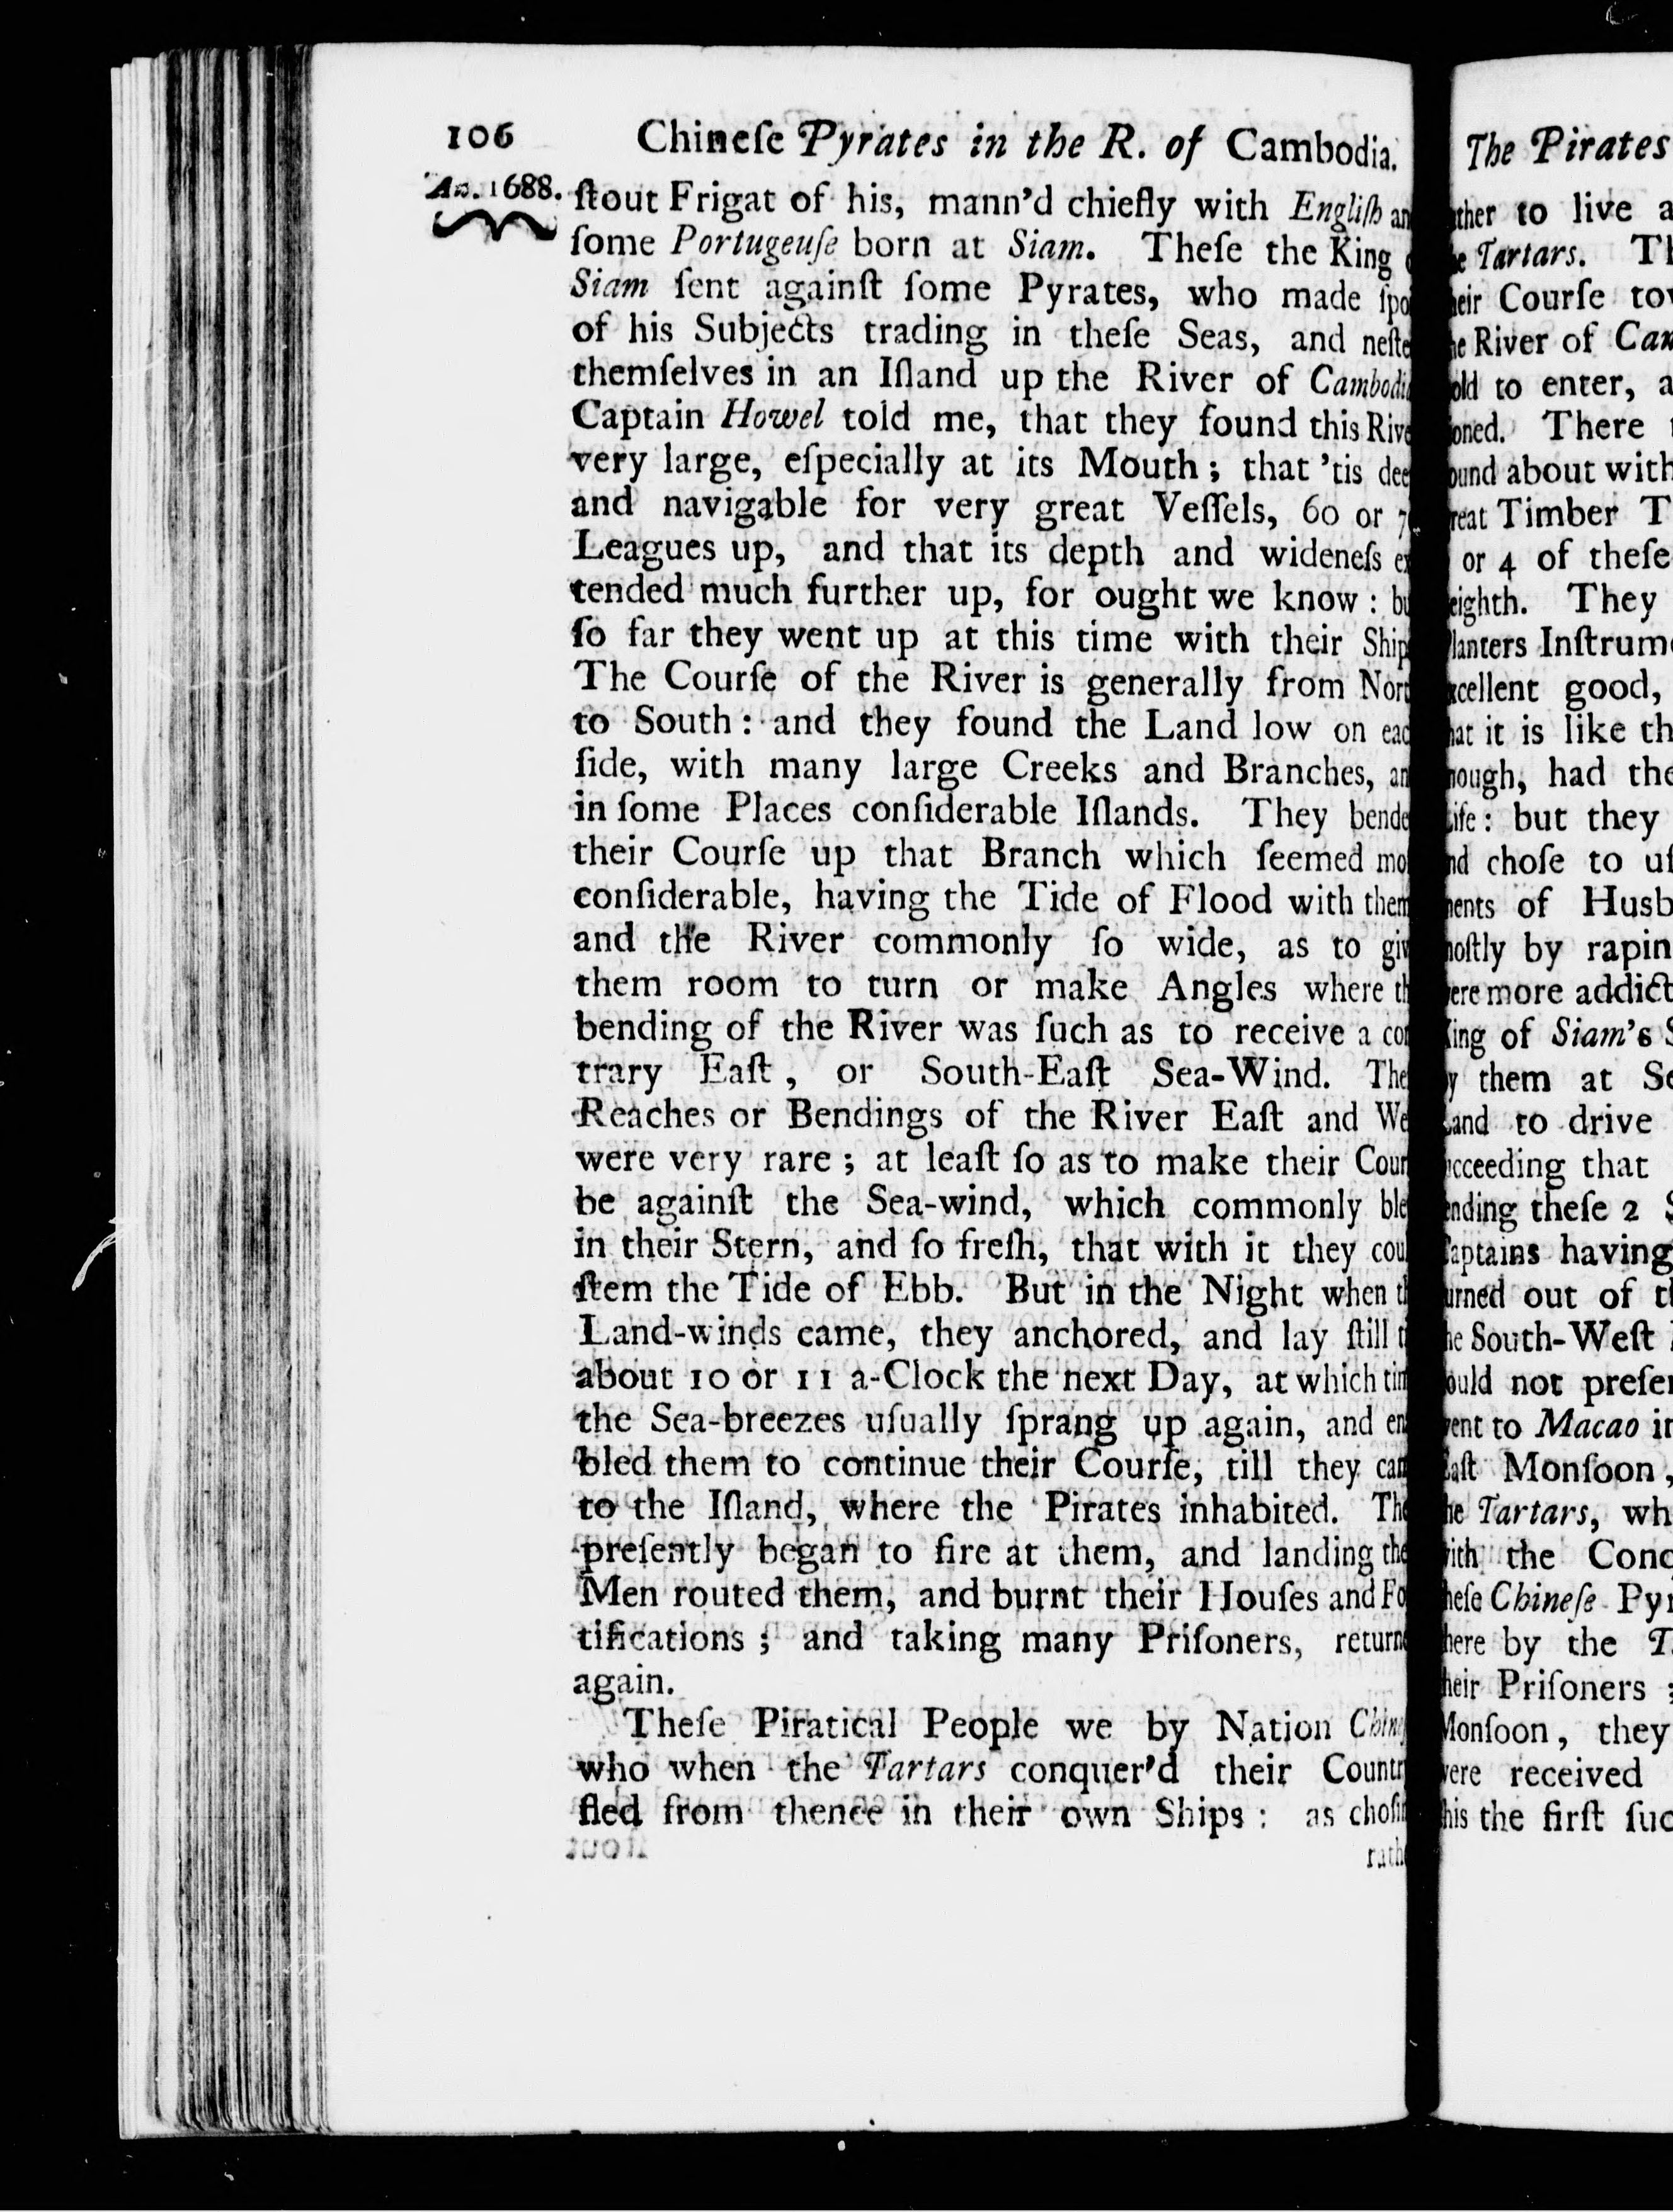 106 Chineſe Pyrates in the R. of Cambodia.
An. 1688.
ſtout Frigat of his, mann'd chiefly with Engliſh an
ſome Portugeuſe born at Siam. Theſe the King
Siam ſent againſt ſome Pyrates, who made ſpoi
of his Subjects trading in theſe Seas, and neſte
themſelves in an Iſland up the River of Cambodi
Captain Howel told me, that they found this Rive
very large, eſpecially at its Mouth; that 'tis dee
and navigable for very great Veſſels, 60 or 7
Leagues up, and that its depth and wideneſs ex
tended much further up, for ought we know: bu
ſo far they went up at this time with their Ship
The Courſe of the River is generally from Nort
to South: and they found the Land low on eac
ſide, with many large Creeks and Branches, an
in ſome Places conſiderable Iſlands. They bende
their Courſe up that Branch which ſeemed mo
conſiderable, having the Tide of Flood with them
and the River commonly ſo wide, as to giv
them room to turn or make Angles where th
bending of the River was ſuch as to receive a con
trary Eaſt, or South-Eaſt Sea-Wind. The
Reaches or Bendings of the River Eaſt and We
were very rare; at leaſt ſo as to make their Cour
be againſt the Sea-wind, which commonly ble
in their Stern, and ſo freſh, that with it they cou
ſtem the Tide of Ebb. But in the Night when th
Land-winds came, they anchored, and lay ſtill ti
about 10 or 11 a-Clock the next Day, at which tim
the Sea-breezes uſually ſprang up again, and en
bled them to continue their Courſe, till they cam
to the Iſland, where the Pirates inhabited. The
preſently began to fire at them, and landing the
Men routed them, and burnt their Houſes and Fo
tifications; and taking many Priſoners, returne
again.
Theſe Piratical People we by Nation Chineſ
who when the Tartars conquer'd their Countr
fled from thence in their own Ships: as choſin
rathe
The Pirates
ther to live a
e Tartars. Th
heir Courſe tow
he River of Cam
old to enter, a
oned. There
ound about with
reat Timber T
or 4 of theſe
eighth. They
lanters Inſtrume
xcellent good,
hat it is like th
nough, had the
ife: but they
nd choſe to uſ
ents of Husb
oſtly by rapin
ere more addict
ing of Siam's S
y them at Se
and to drive
cceeding that
nding theſe 2 S
aptains having
urned out of th
he South-Weſt
ould not preſer
ent to Macao in
aſt Monſoon,
he Tartars, wh
ith the Conq
heſe Chineſe Pyr
here by the T
heir Priſoners
Monſoon, they
ere received
his the firſt ſuc